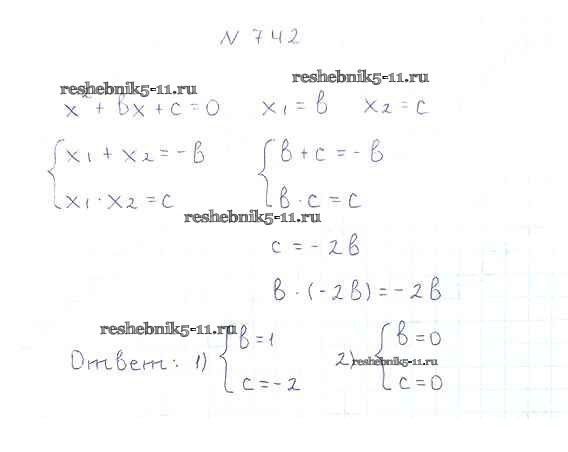 N 742
reshebnik5-11.ru reshebnik5-11.ru
x² + bx + c = 0 x₁ = b x₂ = c
{ x₁ + x₂ = -b { b + c = -b
x₁ · x₂ = c b · c = c
reshebnik5-11.ru
c = -2b
b · (-2b) = -2b
reshebnik5-11.ru
Ответ: 1) { b = 1 2) { b = 0
reshebnik5-11.ru
c = -2 c = 0